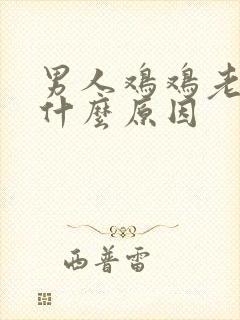 男人鸡鸡老
什麼原因
西普雷